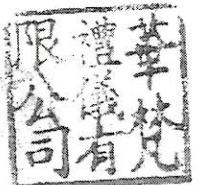 華梵
禮儀有
限公司